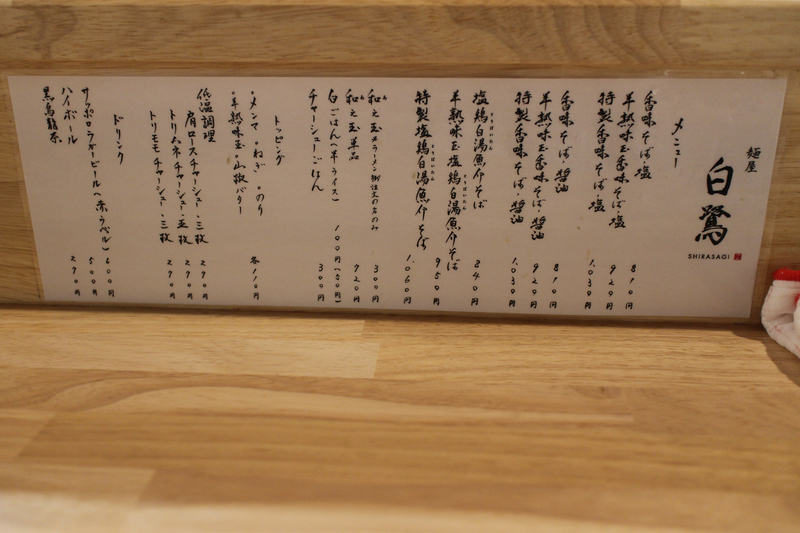 麺屋
白鷺
SHIRASAGI
メニュー
香味そば・塩 810円
半熟味玉香味そば・塩 920円
特製香味そば・塩 1,030円
香味そば・醤油 810円
半熟味玉香味そば・醤油 920円
特製香味そば・醤油 1,030円
塩鶏白湯魚介そば 840円
半熟味玉塩鶏白湯魚介そば 950円
特製塩鶏白湯魚介そば 1,060円
和え玉 ※ラーメン御注文の方のみ 300円
和え玉単品
白ごはん(半ライス) 100円(50円)
チャーシューごはん 300円
トッピング
・メンマ・ねぎ・のり
・半熟味玉・山椒バター 各110円
低温調理
肩ロースチャーシュー・三枚 290円
トリムネチャーシュー・三枚 290円
トリモモチャーシュー・三枚 290円
ドリンク
サッポロラガービール(赤ラベル) 600円
ハイボール 500円
黒烏龍茶 290円